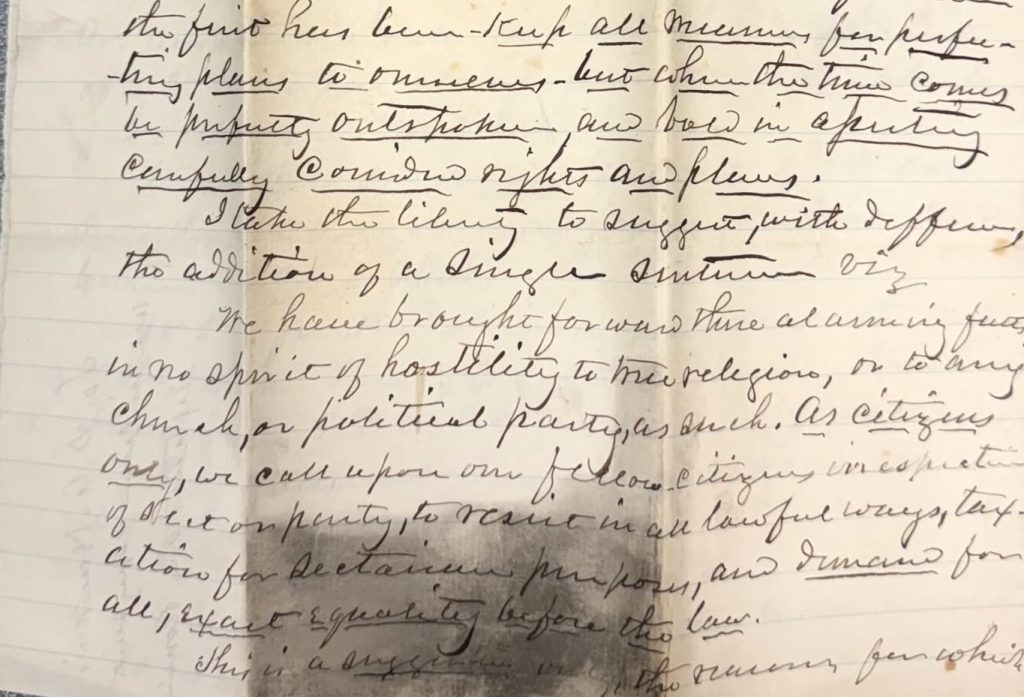 the first has been - Keep all measures for perfec-
-ting plans to ourselves - but when the time comes
be perfectly outspoken, and bold in asserting
carefully considered rights and plans.
I take the liberty to suggest, with deffer
the addition of a single sentence viz
We have brought forward these alarming facts
in no spirit of hostility to true religion, or to any
church, or political party, as such. As citizens
only, we call upon our fellow-citizens irrespective
of sect or party, to resist in all lawful ways, tax-
ation for sectarian purposes, and demand for
all, exact equality before the law.
This is a suggestion only, the reasons for which